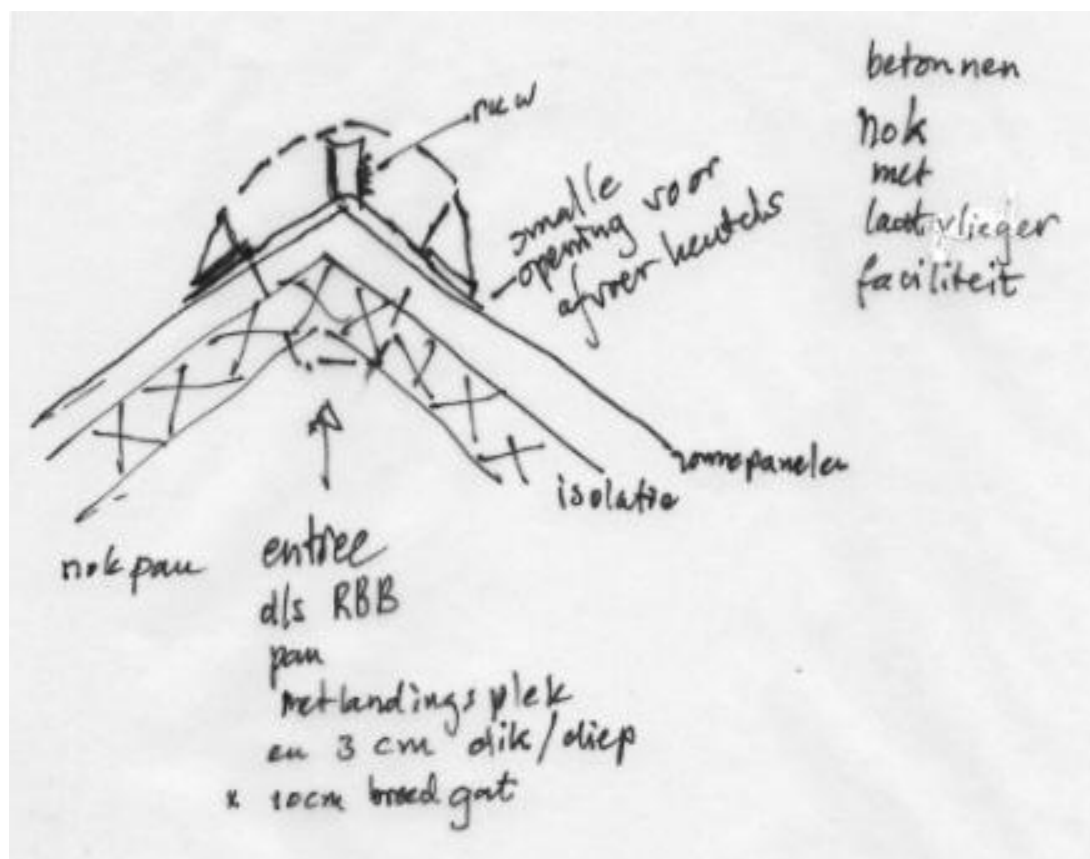 betonnen
nok
met
laatvlieger
faciliteit
rkw
smalle
opening voor
afvoer keutels
zonnepanelen
isolatie
nok pan
entree
dls RBB
pan
met landingsplek
en 3 cm dik/diep
x 10cm breed gat